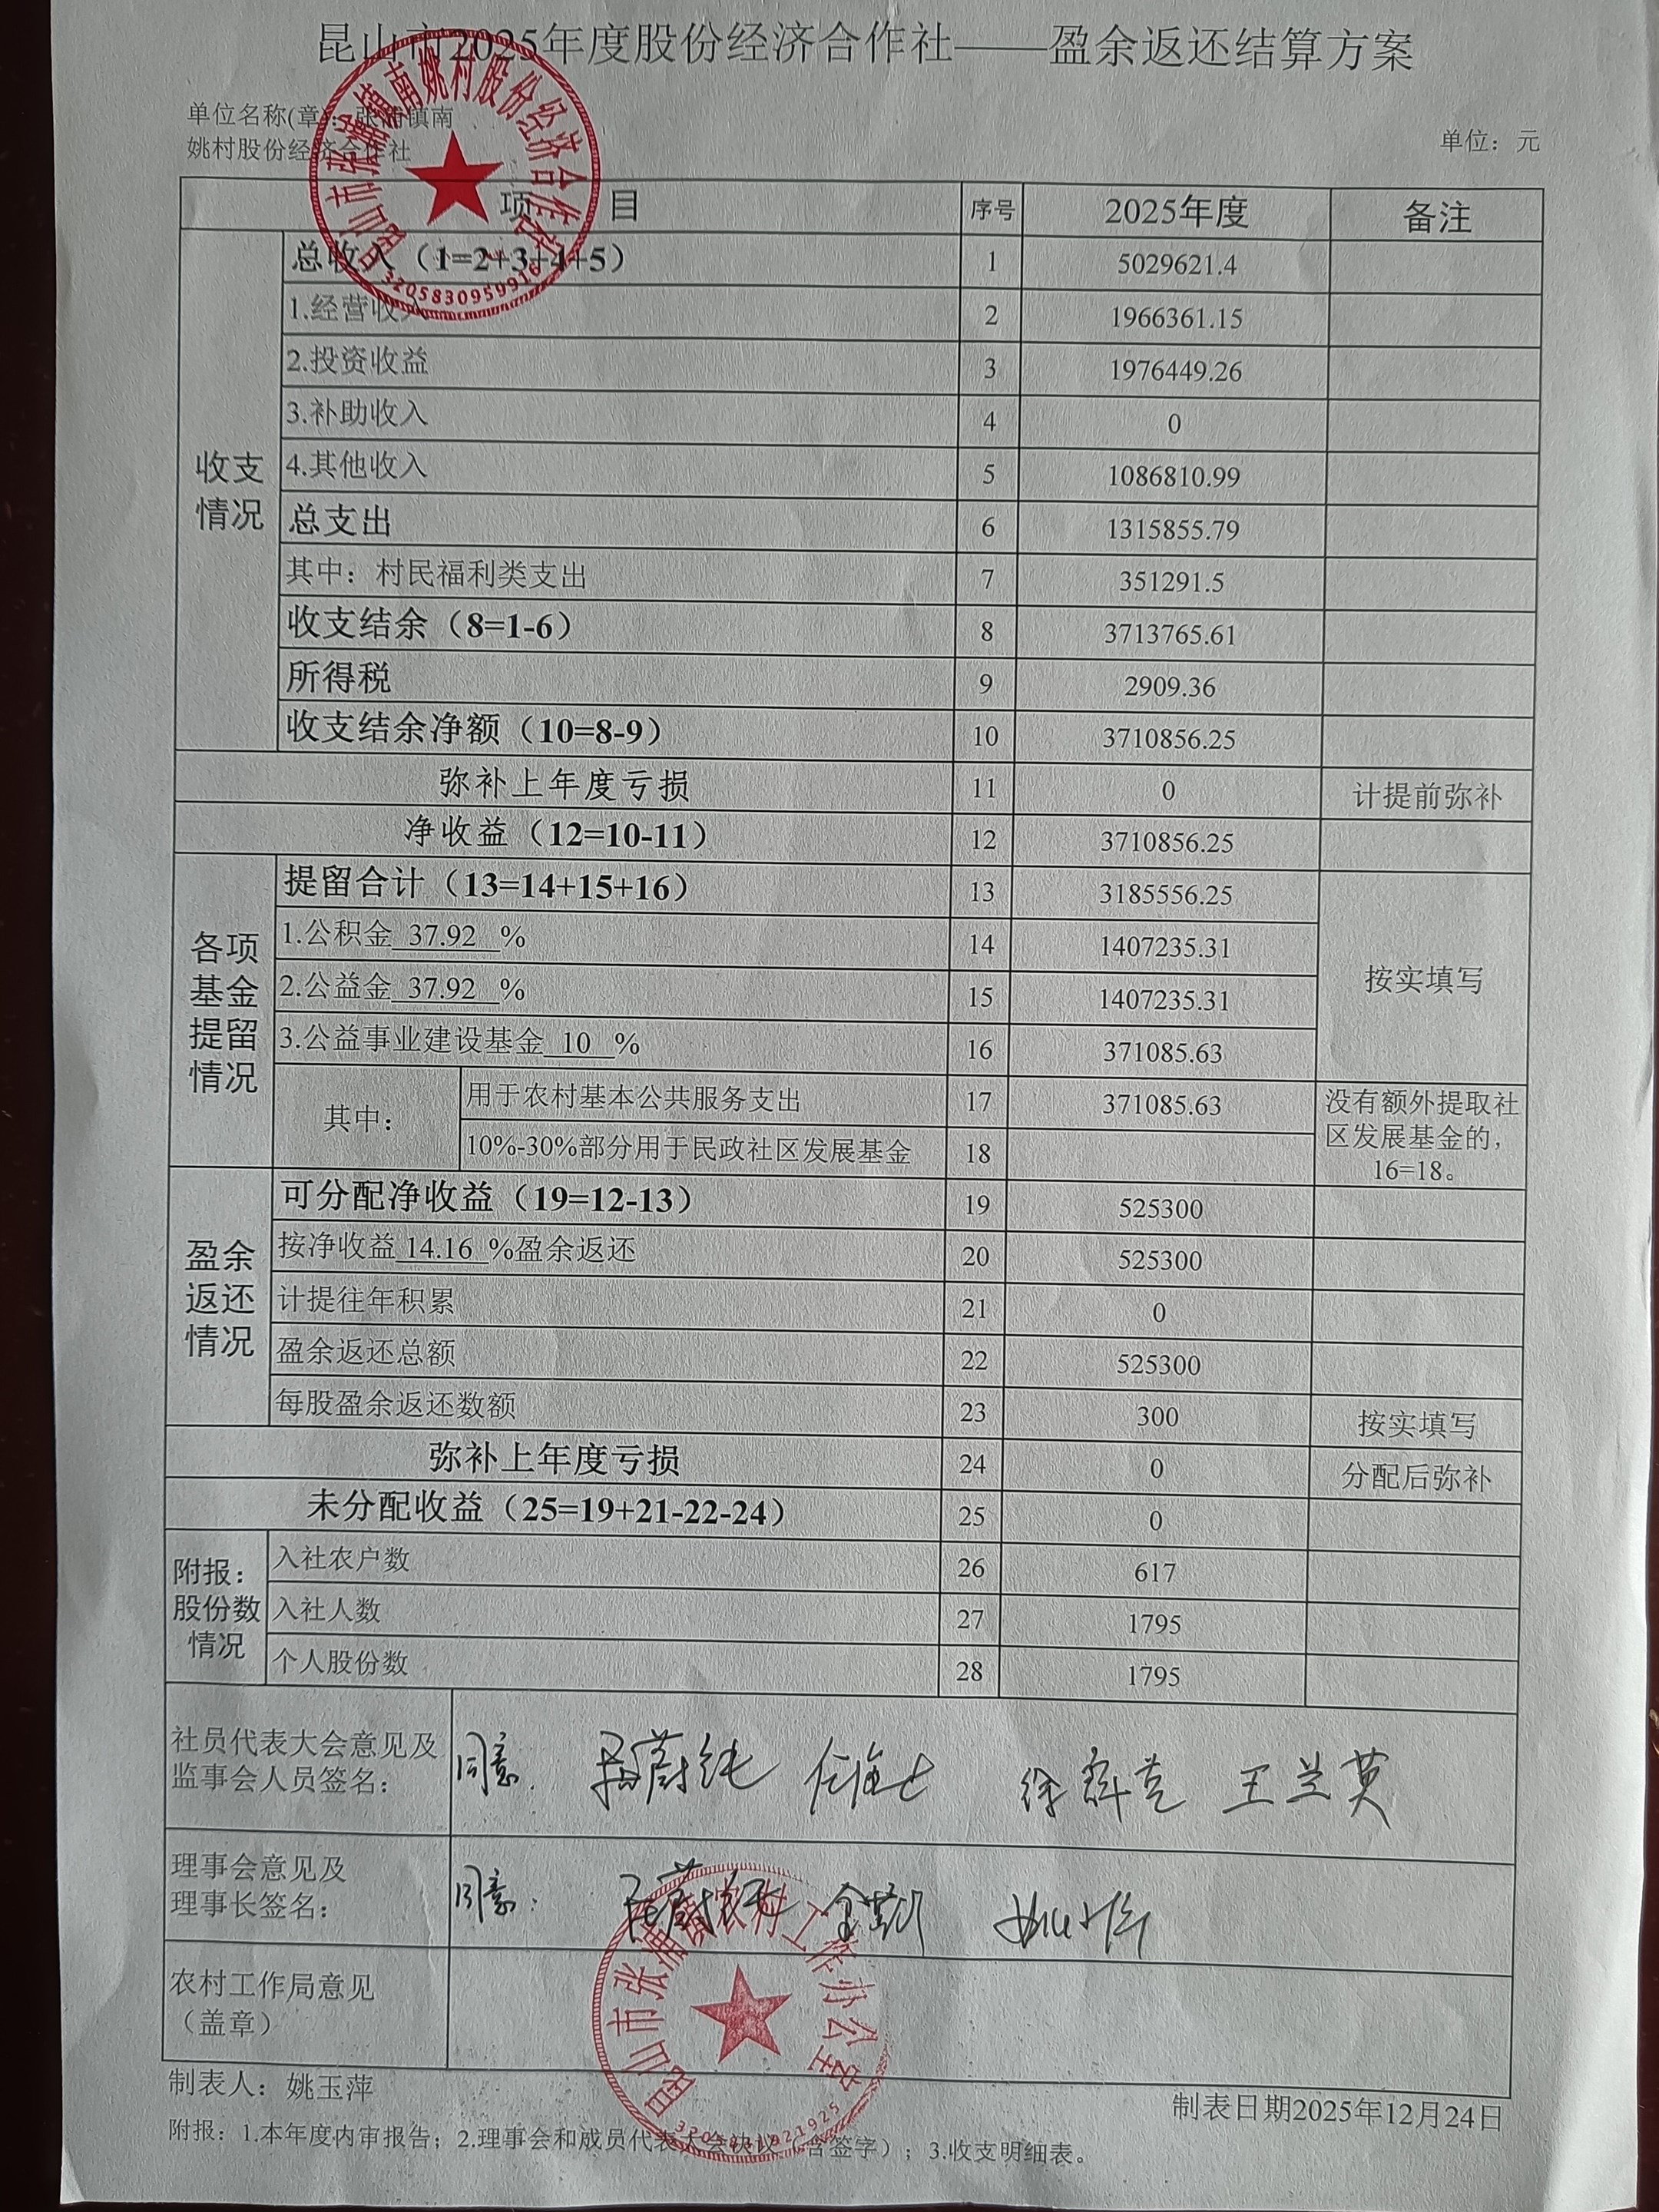 昆山市2025年度股份经济合作社——盈余返还结算方案
单位名称(章):张浦镇南
姚村股份经济合作社
单位：元
昆山市张浦镇南姚村股份经济合作社
项 目 序号 2025年度 备注
收支情况
总收入（1=2+3+4+5） 1 5029621.4
1.经营收入 2 1966361.15
2.投资收益 3 1976449.26
3.补助收入 4 0
4.其他收入 5 1086810.99
总支出 6 1315855.79
其中：村民福利类支出 7 351291.5
收支结余（8=1-6） 8 3713765.61
所得税 9 2909.36
收支结余净额（10=8-9） 10 3710856.25
弥补上年度亏损 11 0 计提前弥补
净收益（12=10-11） 12 3710856.25
各项基金提留情况
提留合计（13=14+15+16） 13 3185556.25
1.公积金 37.92 % 14 1407235.31
2.公益金 37.92 % 15 1407235.31
按实填写
3.公益事业建设基金 10 % 16 371085.63
其中：
用于农村基本公共服务支出 17 371085.63
10%-30%部分用于民政社区发展基金 18
没有额外提取社
区发展基金的，
16=18。
盈余返还情况
可分配净收益（19=12-13） 19 525300
按净收益 14.16 %盈余返还 20 525300
计提往年积累 21 0
盈余返还总额 22 525300
每股盈余返还数额 23 300 按实填写
弥补上年度亏损 24 0 分配后弥补
未分配收益（25=19+21-22-24） 25 0
附报：股份数情况
入社农户数 26 617
入社人数 27 1795
个人股份数 28 1795
社员代表大会意见及
监事会人员签名：
同意. 王兰英
理事会意见及
理事长签名：
同意. 金勤
农村工作局意见
（盖章）
昆山市张浦镇农村工作办公室
制表人：姚玉萍
制表日期2025年12月24日
附报：1.本年度内审报告；2.理事会和成员代表大会决议（含签字）；3.收支明细表。